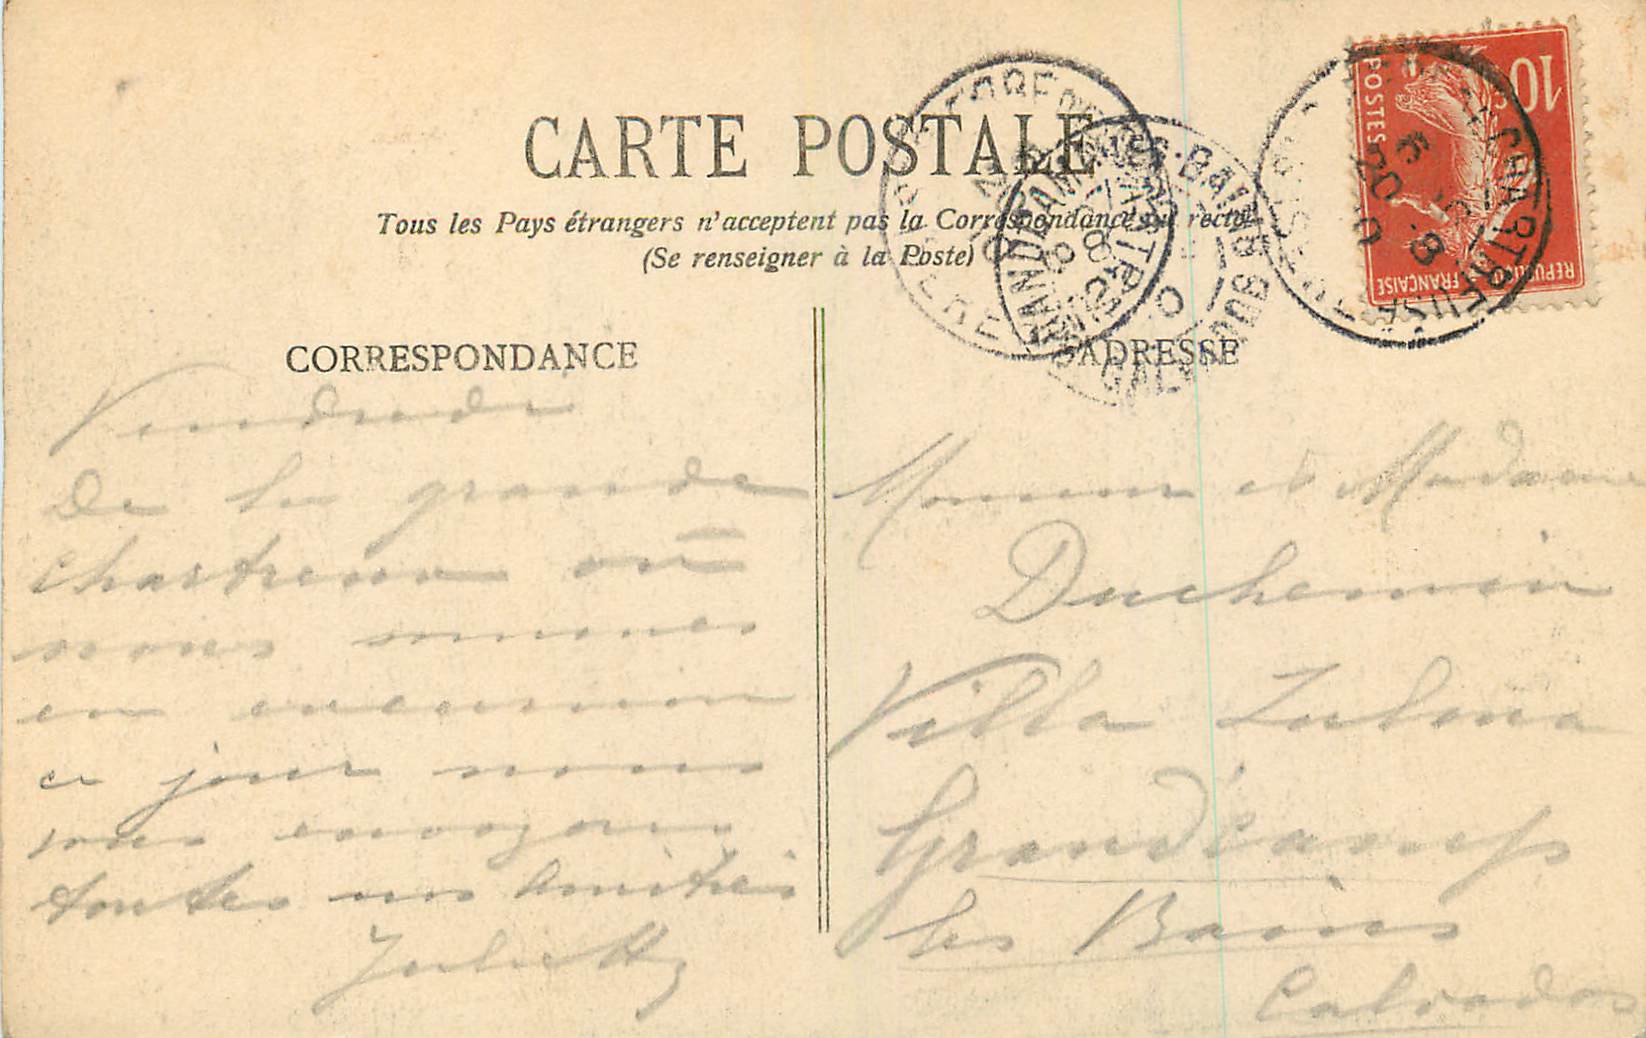 CARTE POSTALE
Tous les Pays étrangers n'acceptent pas la Correspondance au recto
(Se renseigner à la Poste)
CORRESPONDANCE
Vendredi
De la grande
chartreuse où
nous sommes
en excursion
ce jour nous
vous envoyons
toutes nos amitiés
Juliette
ADRESSE
Monsieur et Madame
Duchemin
Villa
Grandcamp
les Bains
Calvados
10c
POSTES
REPUBLIQUE FRANÇAISE
GRANDCAMP-LES-BAINS
CALVADOS
CHARTREUSE
ISÈRE